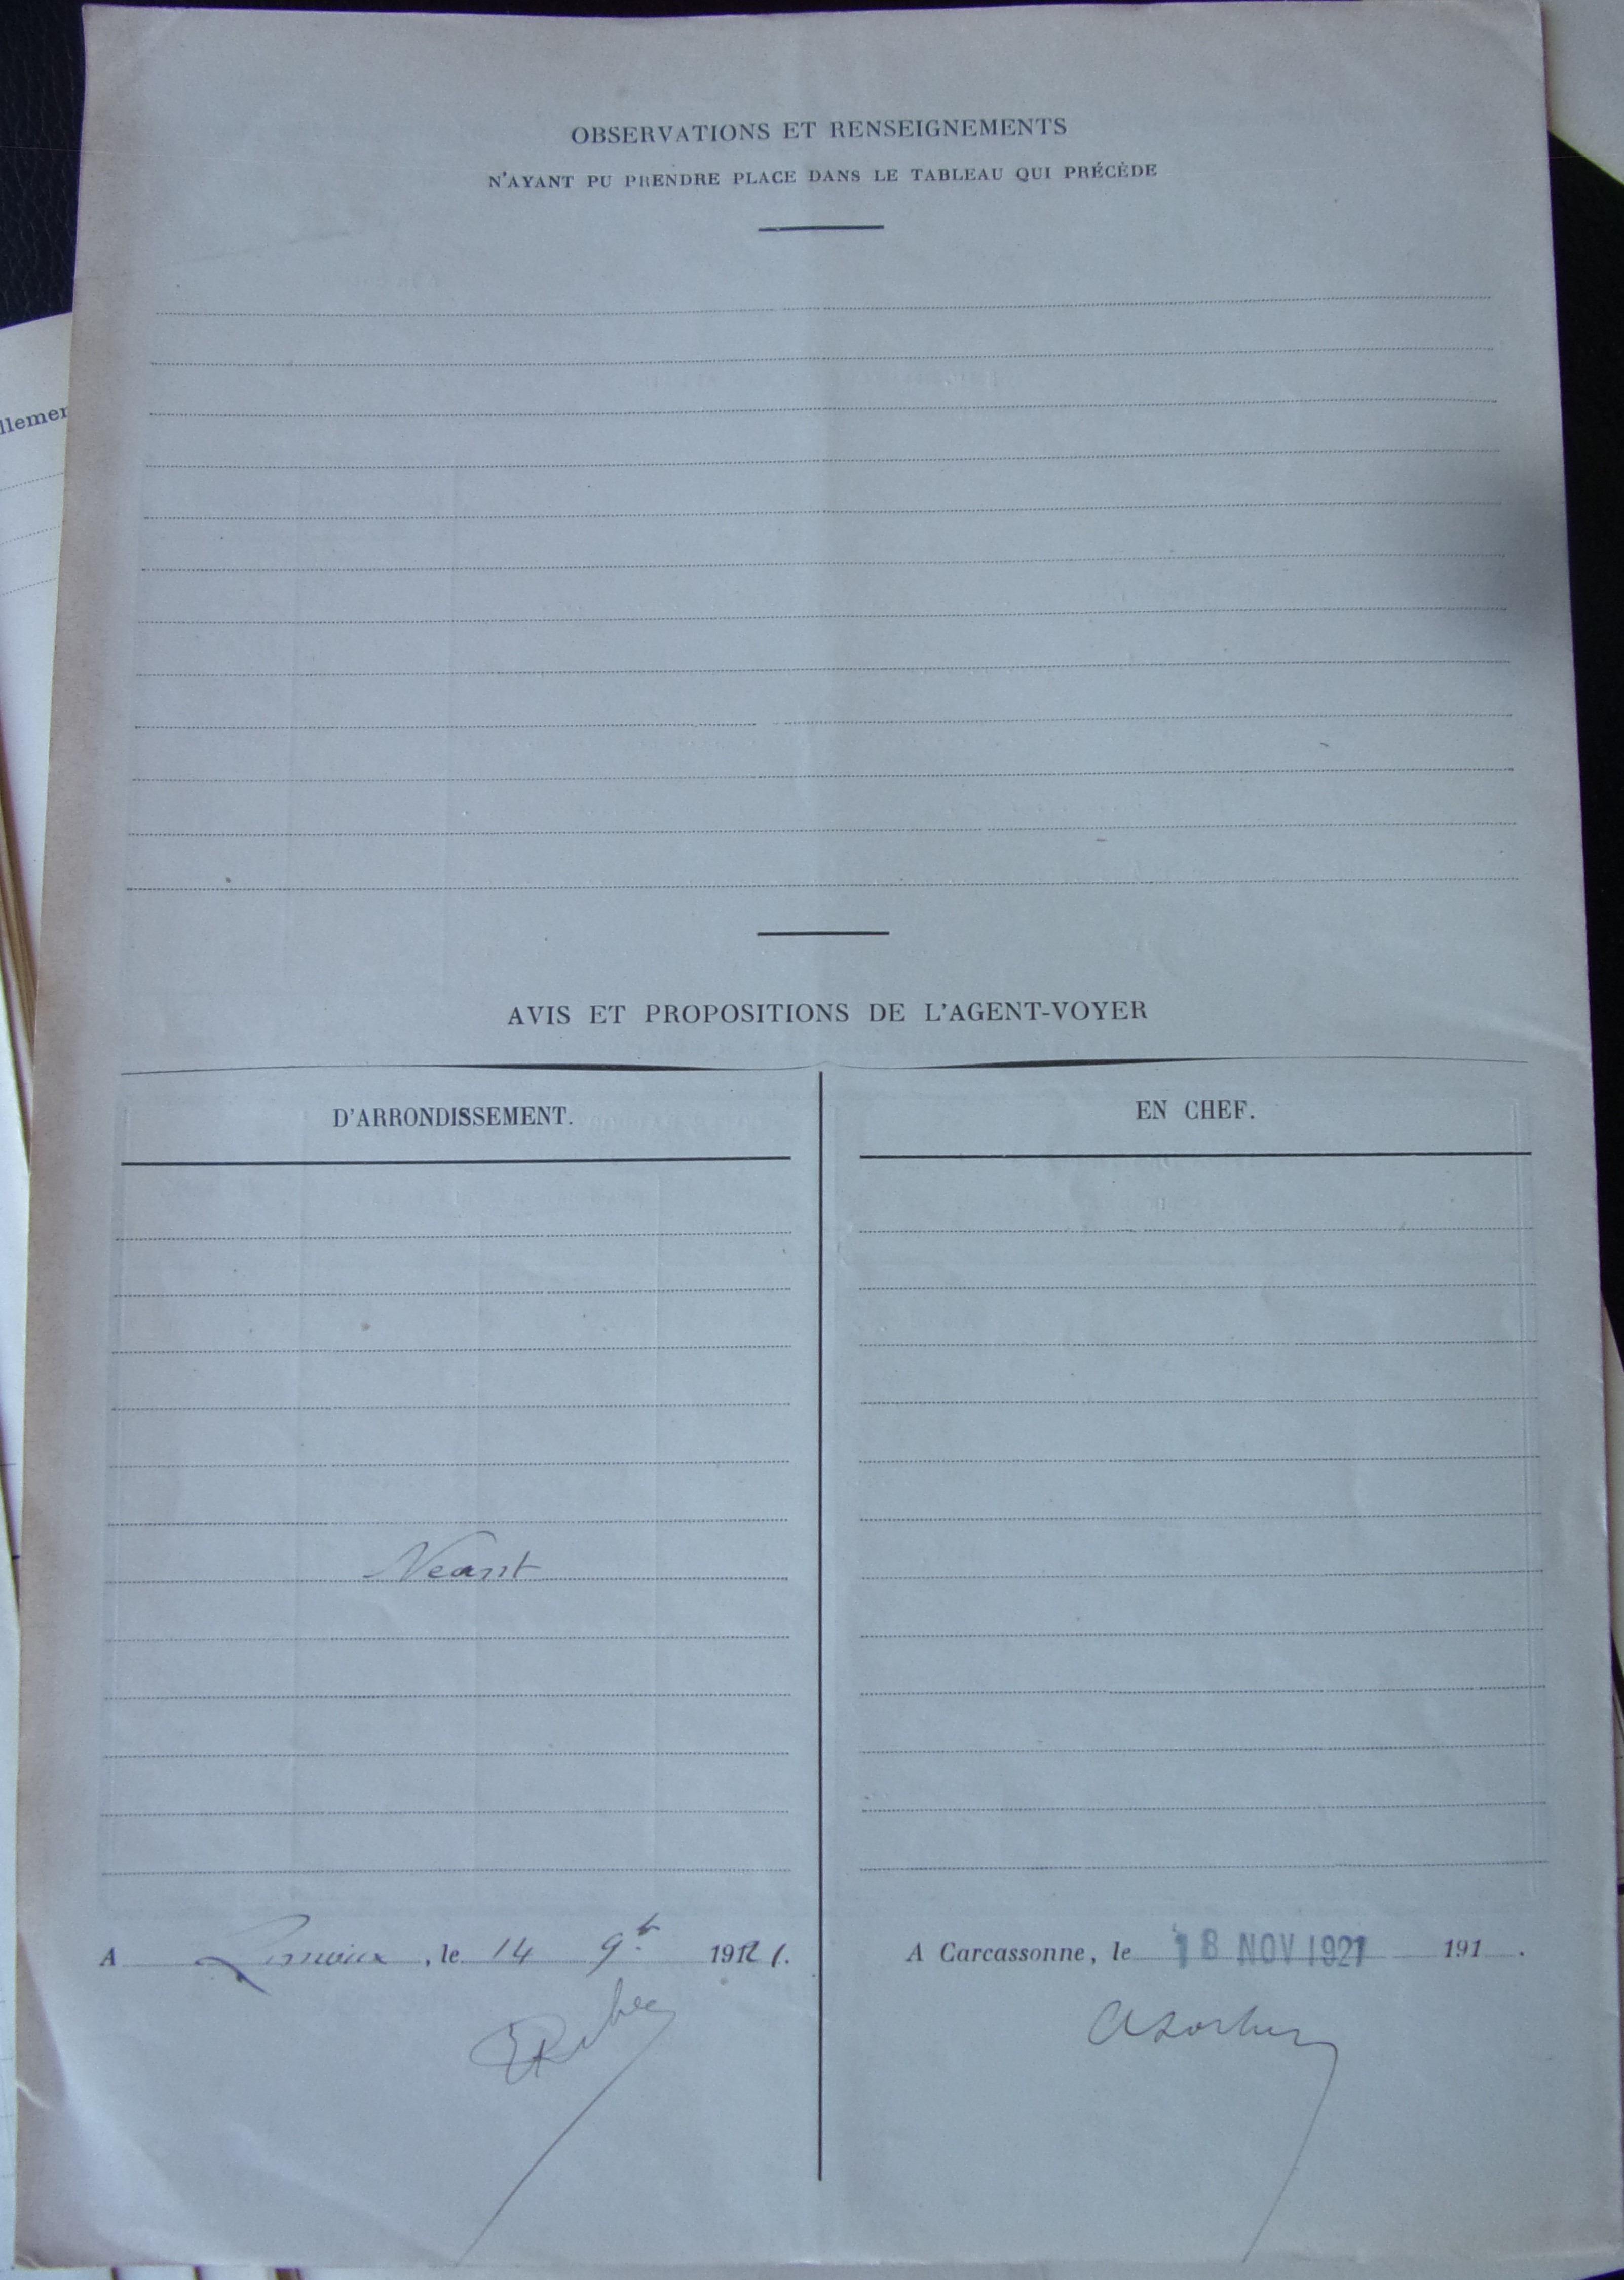 OBSERVATIONS ET RENSEIGNEMENTS
N'AYANT PU PRENDRE PLACE DANS LE TABLEAU QUI PRÉCÈDE
llemen
AVIS ET PROPOSITIONS DE L'AGENT-VOYER
D'ARRONDISSEMENT.
Neant
A Limoux, le 14 9bre 1921.
EN CHEF.
A Carcassonne, le 18 NOV 1921 191 .